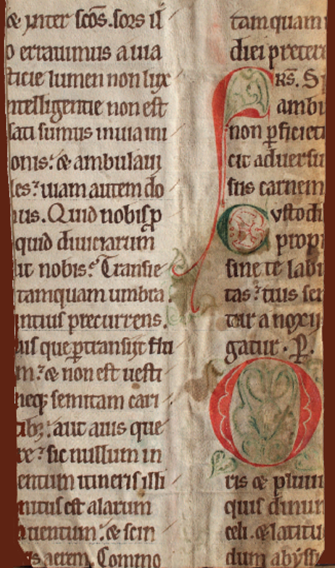 & inter scōs. sors il
o erravimus a via
ticie lumen non lux
ntelligentie non est
sati sumus in via ini
onis: & ambulavi
les: viam autem do
vus. Quid nobis ꝓ
quid divitiarum
it nobis: Transie
tamquam umbra
intius precurrens.
vis que ꝑtransit flu
m: & non est vesti
neqꝫ semitam cari
tibꝫ: aut avis que
re: sic nullum in
entum itineris illi
nitus est alarum
ventum: & scin
es aerem. Commo
tamquam
diei preteri
RS. S
ambi
non ꝑficiet
cit adversu
sus carnem
Custodi
propi
sine te labi
tas: tuis sem
tur a noxii
gatur. P.
O
ris & pluvi
quis dinum
celi. & latitu
dum abyssi